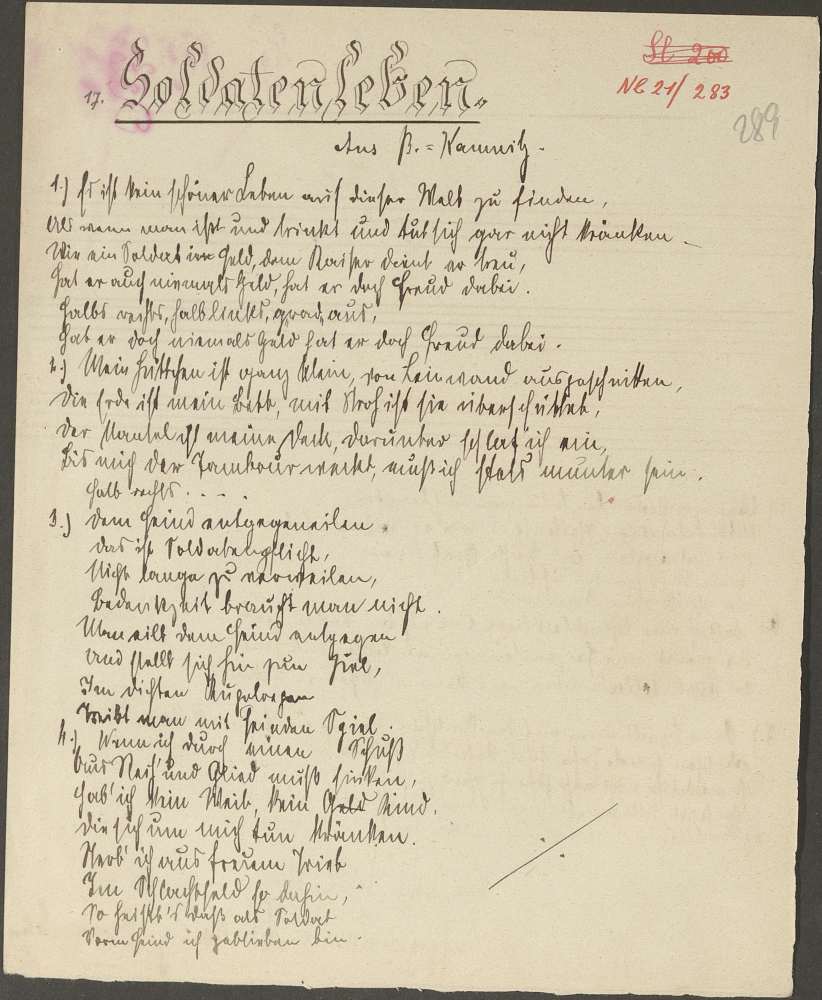 Sl 200
Nl 21/ 283
289
17. Soldatenleben.
Aus B.=Kamnitz.
1.) Es ist kein schöner Leben auf dieser Welt zu finden,
Als wenn man ißt und trinkt und tut sich gar nicht kränken
Wie ein Soldat im Feld, dem Kaiser dient er treu,
Hat er auch niemals Geld, hat er doch Freud dabei.
Halbs rechts, halb links, grad aus,
Hat er doch niemals Geld hat er doch Freud dabei.
2.) Mein Hüttchen ist ganz klein, von Leinwand ausgeschnitten,
Die Erde ist mein Bett, mit Stroh ist sie überschüttet,
Der Mantel ist meine Deck, darunter schlaf' ich ein,
Bis mich der Tambour weckt, muß ich stets munter sein.
Halb rechts . . . .
3.) Dem Feind entgegeneilen
Das ist Soldatenpflicht,
Nicht lange zu verweilen,
Bedenkzeit braucht man nicht.
Man eilt dem Feind entgegen
Und stellt sich hin zum Ziel,
Im dichten Kugelregen
Treibt man mit Feinden Spiel.
4.) Wenn ich durch einen Schuß
Aus Reih' und Glied muß sinken,
Hab' ich kein Weib, kein Geld Kind.
Die sich um mich tun kränken.
Sterb' ich aus freiem Trieb
Im Schlachtfeld so dahin,
So heißt's daß als Soldat
Vorm Feind ich geblieben bin.